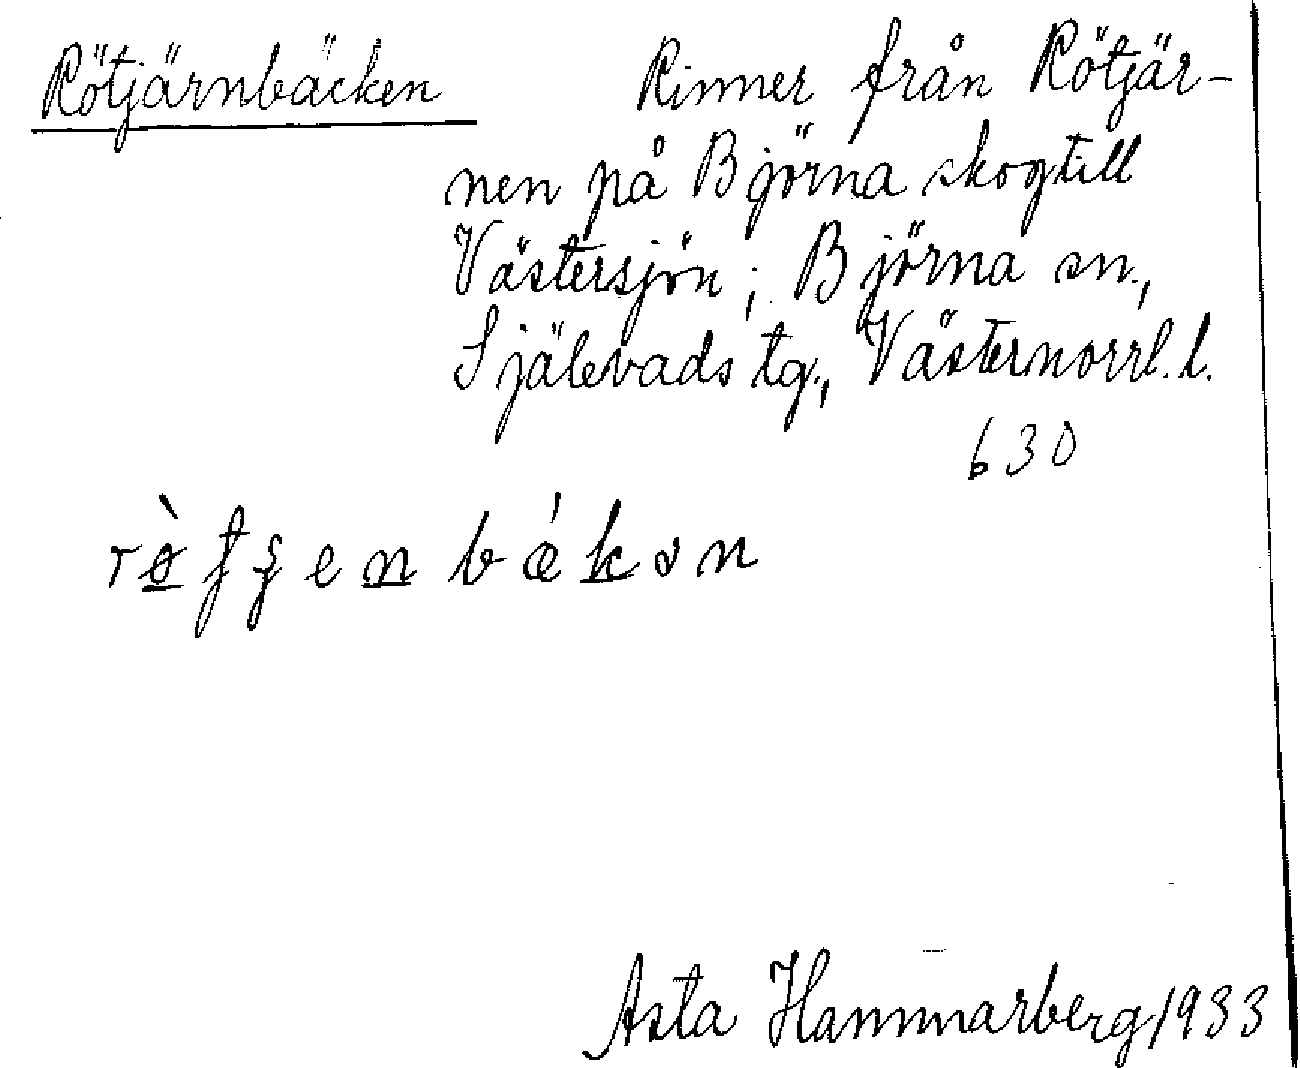 Rötjärnbäcken Rinner från Rötjär-
nen på Björna skog till
Västersjön; Björna sn.,
Själevads tg., Västernorrl. l.
630
Asta Hammarberg 1933